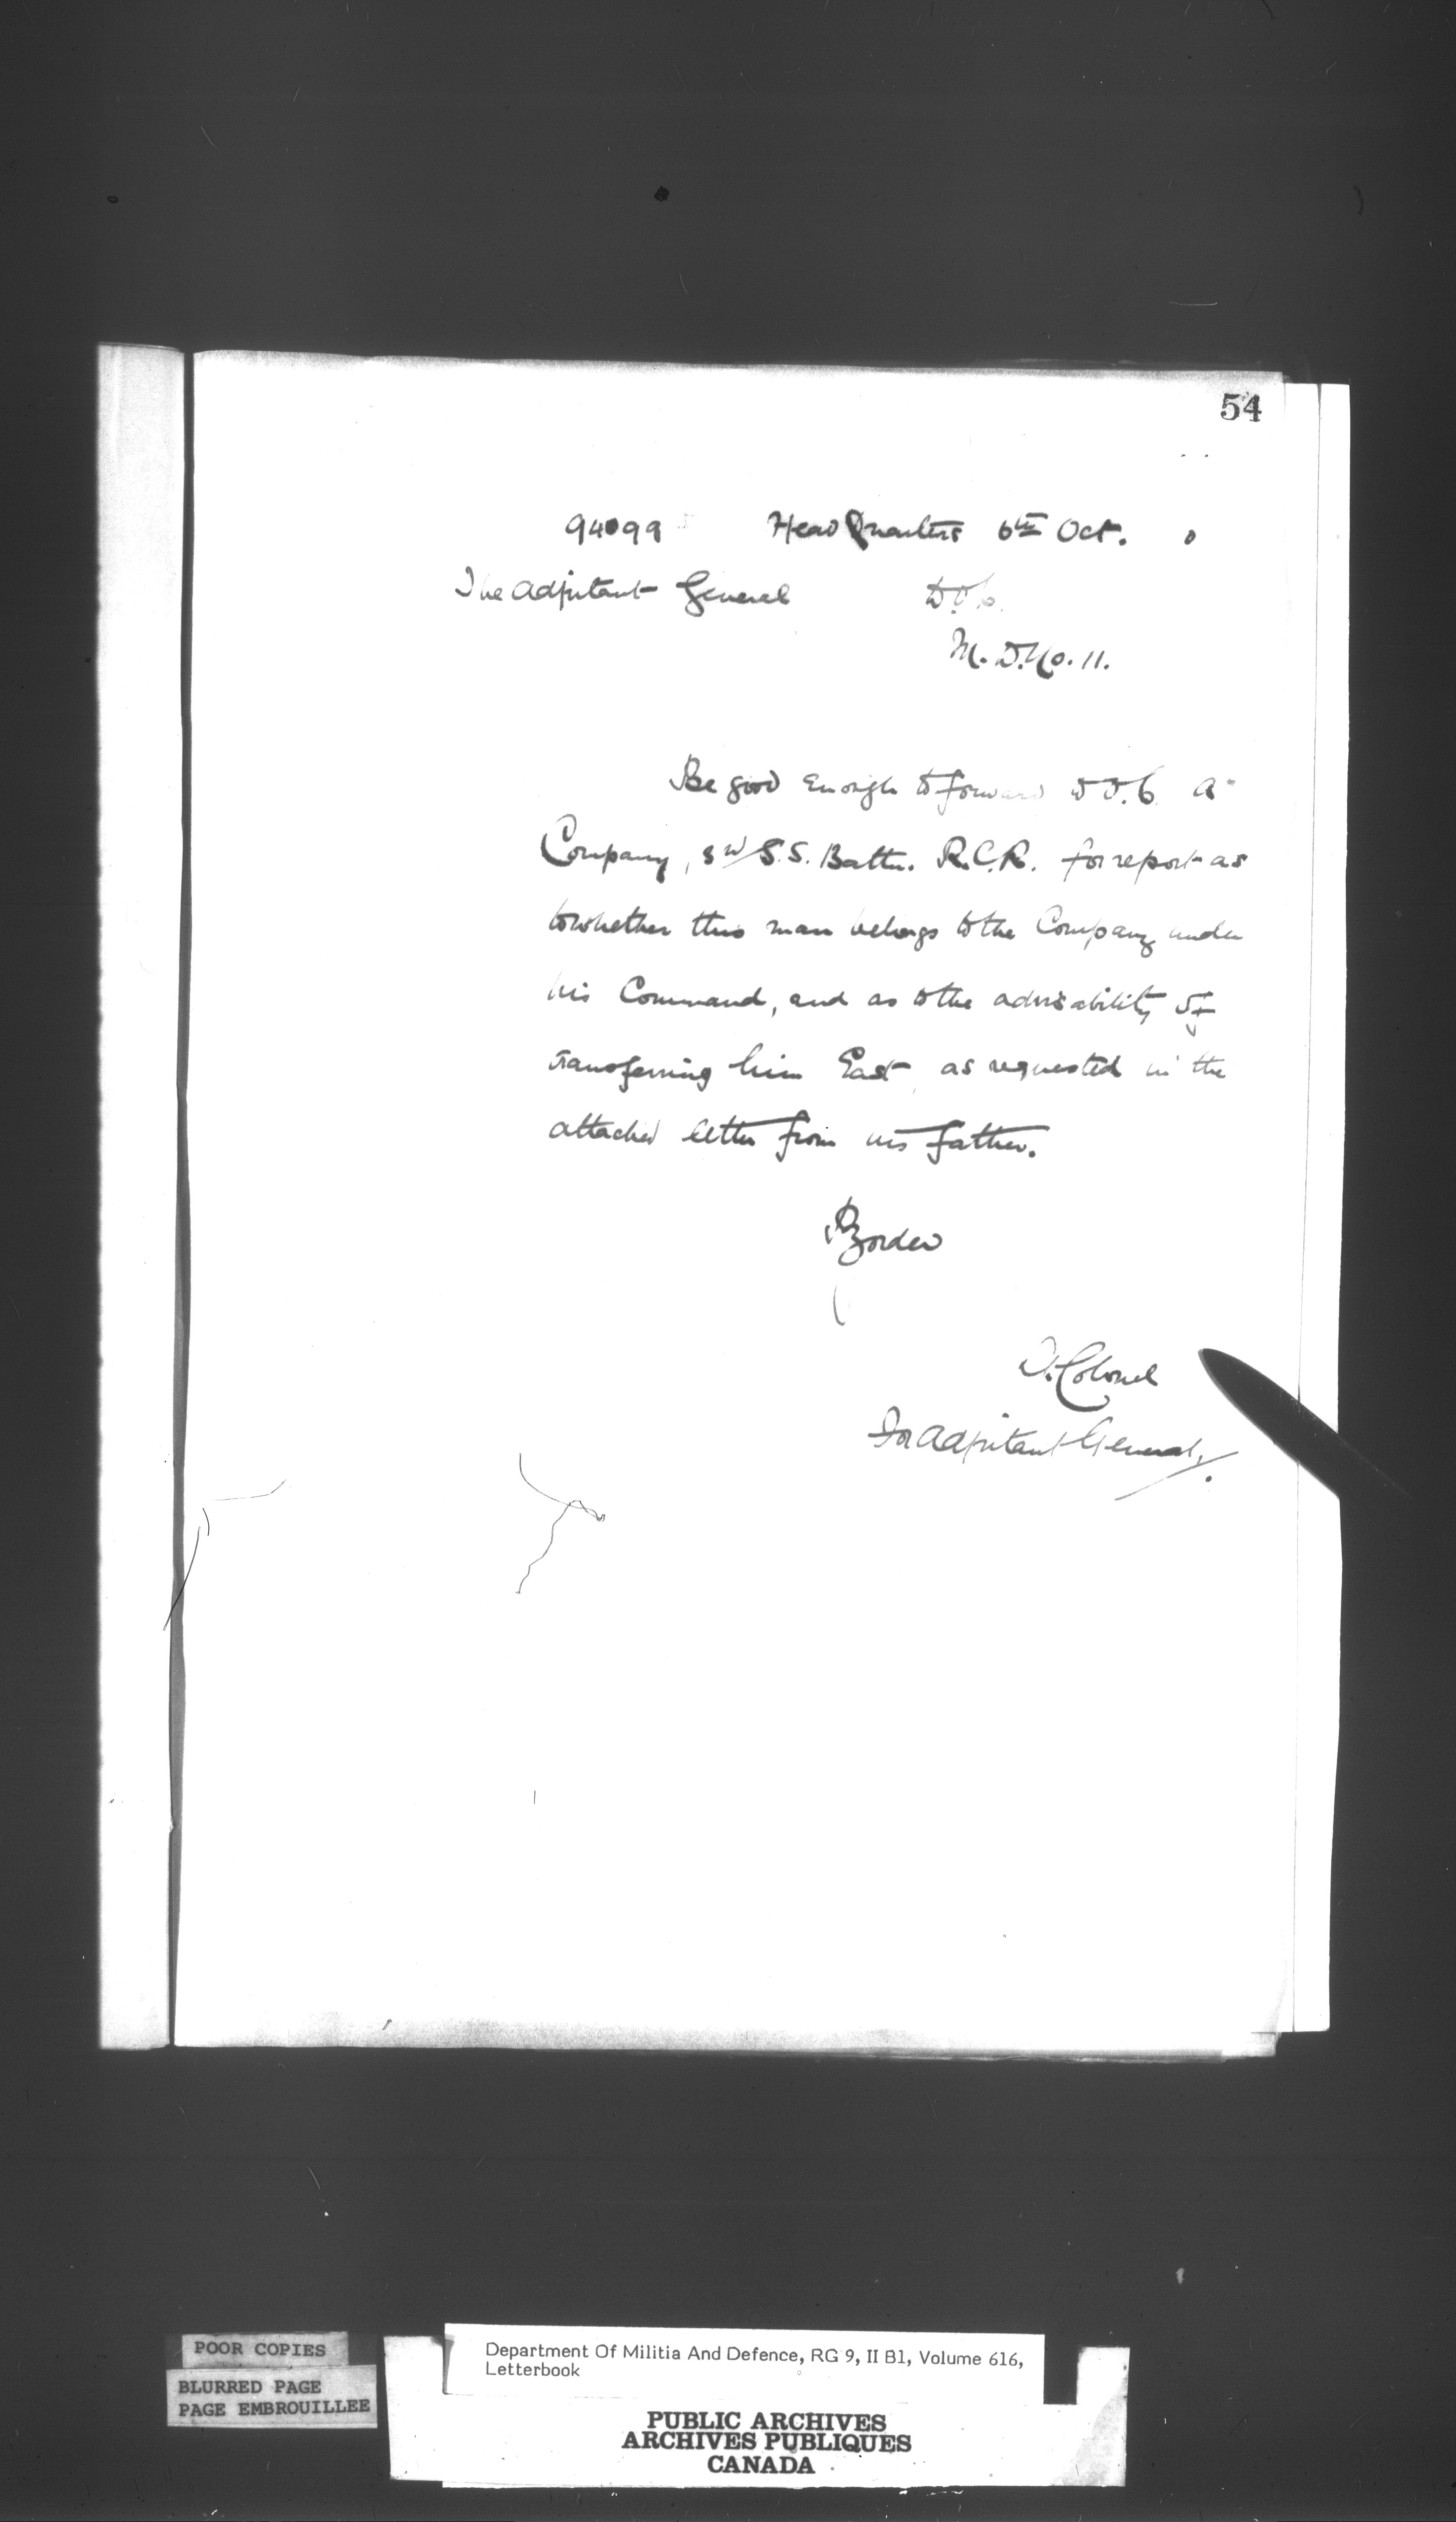 54
94099 Head Quarters 6th Oct. 0
The Adjutant General D.O.C.
M. D. No. 11.
Be good enough to forward to O.C. A
Company, 3rd S.S. Battn. R.C.R. for report as
to whether this man belongs to the Company under
his Command, and as to the advisability of
transferring him East as requested in the
attached letter from his father.
By order
Lt. Colonel
For Adjutant General,
POOR COPIES
BLURRED PAGE
PAGE EMBROUILLEE
Department Of Militia And Defence, RG 9, II B1, Volume 616,
Letterbook
PUBLIC ARCHIVES
ARCHIVES PUBLIQUES
CANADA